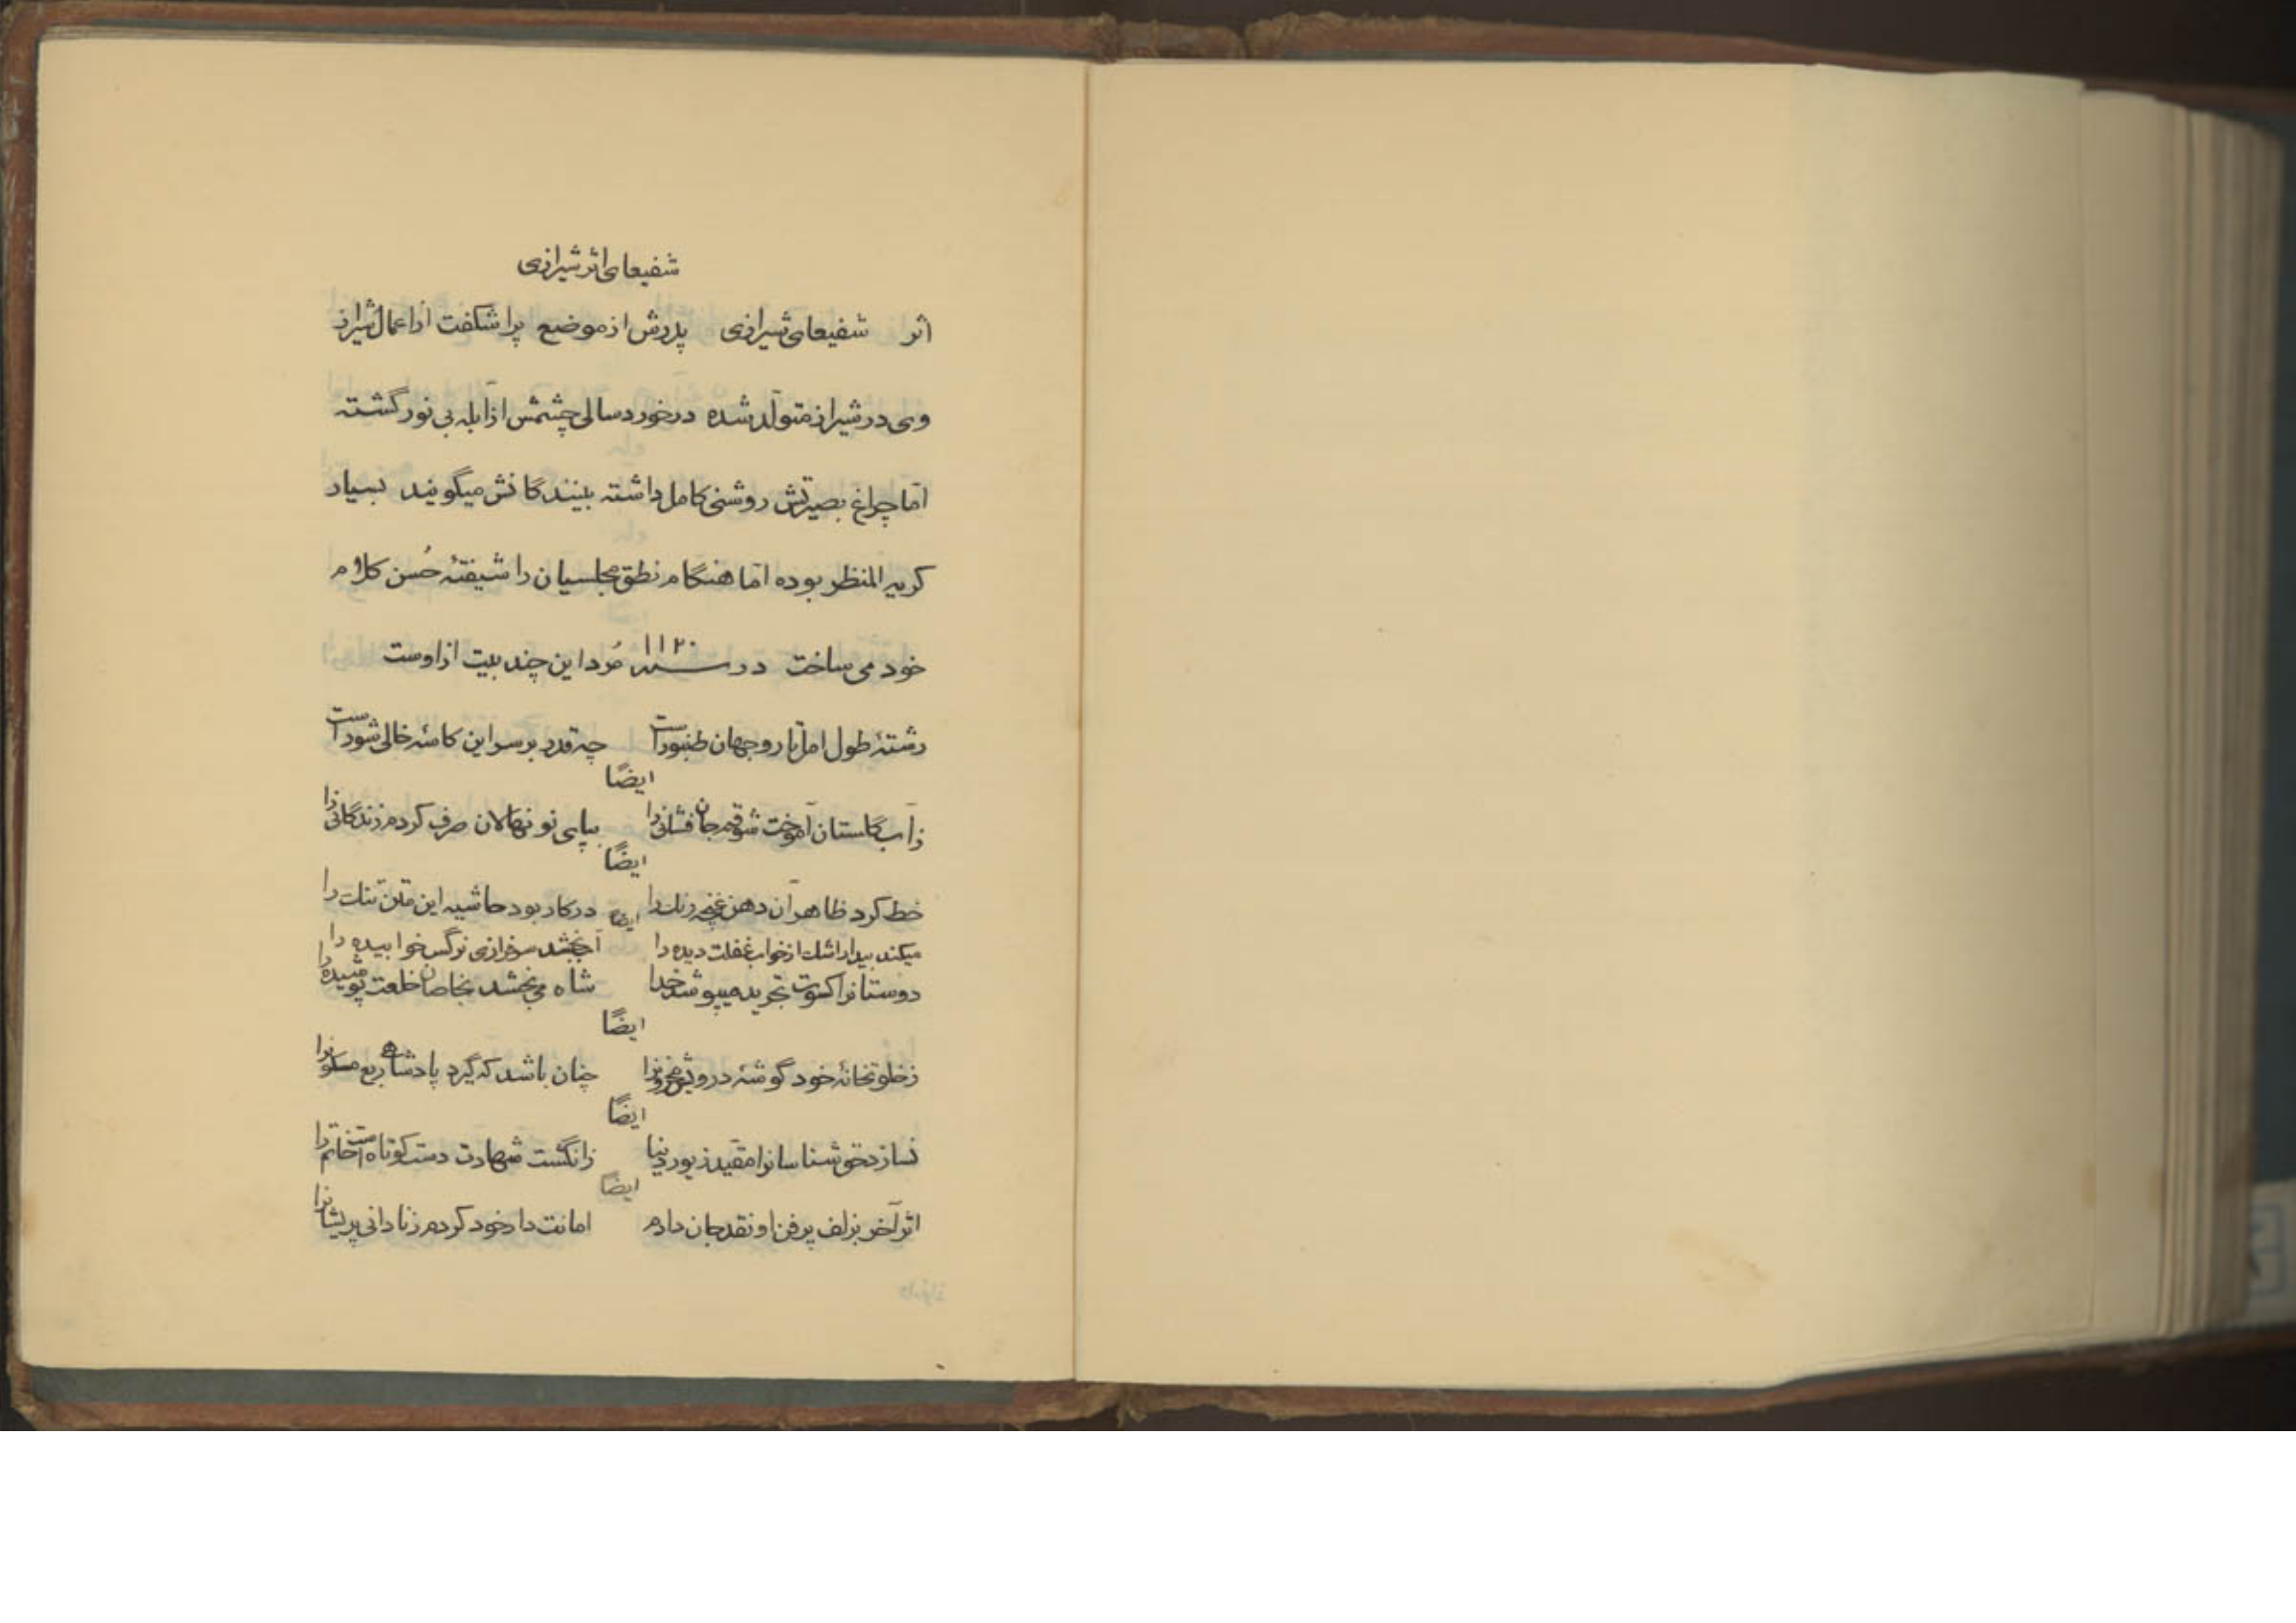 شفیعای اثر شیرازی
اثر شفیعای شیرازی پدرش از موضع پراشکفت از اعمال شیراز
وی در شیراز متولد شده در خوردسالی چشمش از آبله بی نور گشته
امّا چراغ بصیرتش روشنی کامل داشته بینندگانش میگویند بسیار
کریه المنظر بوده امّا هنگام نطق مجلسیان را شیفتهٔ حُسن کلام
خود می ساخت در سنه ۱۱۲۰ مُرد این چند بیت از اوست
رشتهٔ طول امل تار و جهان طنبور است چه قدر بر سر این کاسهٔ خالی شور است
ایضًا
ز آب گلستان آموخت شوقم جان فشانی را بپای نو نهالان صرف کردم زندگانی را
ایضًا
خط کرد ظاهر آن دهن غنچه رنگ را ایضا در کار بود حاشیه این متن تنگ را
میکند بیدار اشک از خواب غفلت دیده را آب بخشد سرفرازی نرگس خوابیده را
دوستانرا کسوت تجرید میپوشد خدا شاه می بخشد بخاصان خلعت پوشیده را
ایضًا
ز خلوتخانهٔ خود گوشهٔ درویش محزونرا چنان باشد که گیرد پادشاهی ربع مسکونرا
ایضًا
نسازد حق شناسانرا مقید زیور دنیا ز انگشت شهادت دست کوتاه است خاتم را
ایضًا
اثر آخر بزلف پرفن او نقد جان دادم امانت دار خود کردم ز نادانی پریشانرا